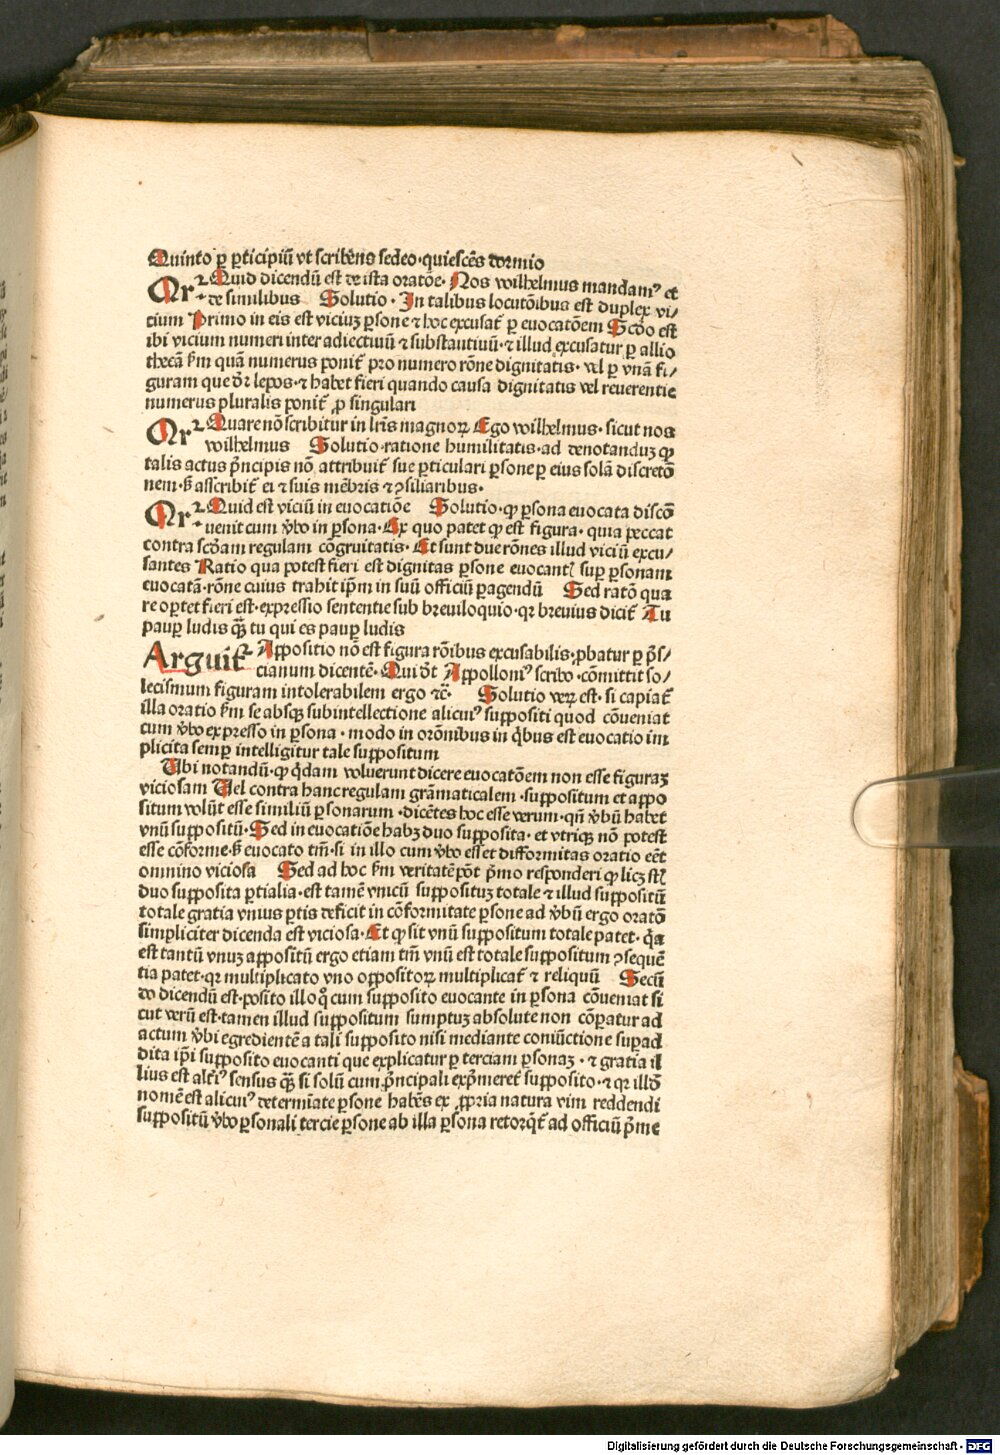 Quinto ꝑ ꝑticipiū vt scribēns sedeo·quiescēs dormio
Qrꝛ Quid dicendū est de ista oratōe· Nos wilhelmus mandamꝰ et
de similibus Solutio· In talibus locutōibus est duplex vi/
cium Primo in eis est viciuꝫ ꝑsone ⁊ hoc excusaẗ ꝑ euocatōem Scďo est
ibi vicium numeri inter adiectiuū ⁊ substantiuū·⁊ illud excusatur ꝑ allio
thecā ẜm quā numerus poniẗ pro numero rōne dignitatis· vel ꝑ vnā fi/
guram que dr̄ lepos·⁊ habet fieri quando causa dignitatis vel reuerentie
numerus pluralis poniẗ ꝓ singulari
Qrꝛ Quare nō scribitur in lr̄is magnoꝝ Ego wilhelmus· sicut nos
wilhelmus Solutio·ratione humilitatis·ad denotanduꝫ ꝙ
talis actus p̄ncipis nō attribuiẗ sue ꝑticulari ꝑsone ꝑ eius solā discretō
nem·ẞ asscribiẗ ei ⁊ suis mēbris ⁊ ꝯsiliaribus·
Qrꝛ Quid est viciū in euocatiōe Solutio·ꝙ ꝑsona euocata discō
uenit cum v̄bo in ꝑsona· Ex quo patet ꝙ est figura· quia peccat
contra scďam regulam cōgruitatis· Et sunt due rōnes illud viciū excu/
santes Ratio qua potest fieri est dignitas ꝑsone euocantꝭ suꝑ ꝑsonam
euocatā·rōne cuius trahit ip̄m in suū officiū ꝑagendū Sed ratō qua
re oꝑtet fieri est·expressio sententie sub breuiloquio·qꝛ breuius diciẗ Tu
pauꝑ ludis qꝫ̄ tu qui es pauꝑ ludis
Arguiẗꝛ Appositio nō est figura rōibus excusabilis·ꝓbatur ꝑ p̄s/
cianum dicentē· Qui dt̄ Appolloniꝰ scribo·cōmittit so/
lecismum figuram intolerabilem ergo ⁊c̄· Solutio veꝝ est· si capiaẗ
illa oratio ẜm se absqꝫ subintellectione alicuiꝰ suppositi quod cōueniat
cum v̄bo expresso in ꝑsona· modo in orōnibus in q̄bus est euocatio im
plicita semꝑ intelligitur tale suppositum
Ubi notandū·ꝙ q̄dam voluerunt dicere euocatōem non esse figuraꝫ
viciosam Uel contra hanc regulam grāmaticalem·suppositum et appo
situm volūt esse similiū ꝑsonarum·dicētes hoc esse verum·qn̄ v̄bū habet
vnū suppositū· Sed in euocatiōe habꝫ duo supposita· et vtriqꝫ nō potest
esse cōforme·ẞ euocato tm̄·si in illo cum v̄bo esset difformitas oratio eēt
omnino viciosa Sed ad hoc ẜm veritatē pōt p̄mo responderi ꝙ licꝫ sīt
duo supposita ꝑtialia·est tamē vnicū supposituꝫ totale ⁊ illud suppositū
totale gratia vnius ꝑtis deficit in cōformitate ꝑsone ad v̄bū ergo oratō
simpliciter dicenda est viciosa· Et ꝙ sit vnū suppositum totale patet· q̄a
est tantū vnuꝫ appositū ergo etiam tm̄ vnū est totale suppositum ꝯsequē
tia patet·qꝛ multiplicato vno oppositoꝝ multiplicaẗ ⁊ reliquū Secū
do dicendū est·posito illo qͦ cum supposito euocante in ꝑsona cōueniat si
cut verū est·tamen illud suppositum sumptuꝫ absolute non cōꝑatur ad
actum v̄bi egredientē a tali supposito nisi mediante coniūctione suꝑad
dita ip̄i supposito euocanti que explicatur ꝑ terciam ꝑsonaꝫ· ⁊ gratia il
lius est alẗiꝰ sensus qꝫ̄ si solū cum p̄ncipali exp̄mereẗ supposito·⁊ qꝛ illď
nomē est alicuiꝰ determīate ꝑsone habēs ex ꝓpria natura vim reddendi
suppositū v̄bo ꝑsonali tercie ꝑsone ab illa ꝑsona retorqẗ ad officiū p̄me
Digitalisierung gefördert durch die Deutsche Forschungsgemeinschaft · DFG